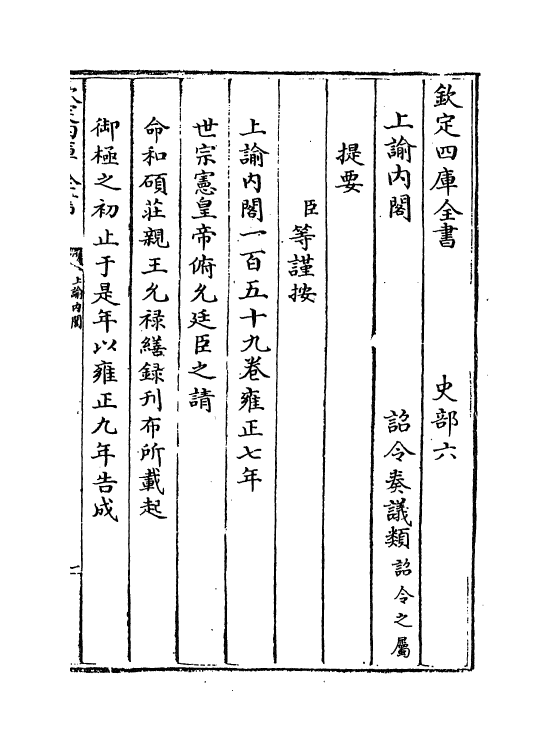 欽定四庫全書　史部六
上諭内閣　詔令奏議類詔令之屬
提要
臣等謹按
上諭内閣一百五十九卷雍正七年
世宗憲皇帝俯允廷臣之請
命和碩莊親王允祿繕録刋布所載起
御極之初止于是年以雍正九年告成
上諭内閣